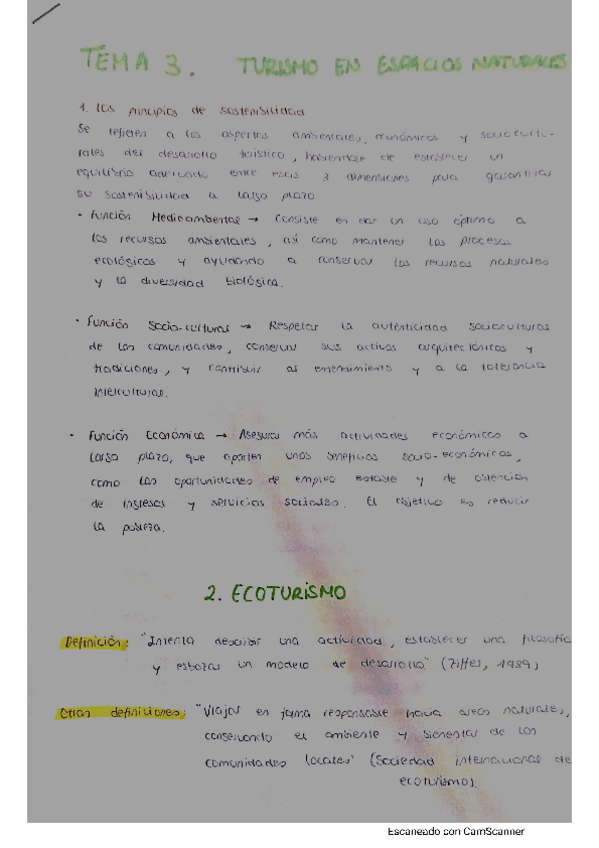 TEMA 3. TURISMO EN ESPACIOS NATURALES
1. Los principios de sostenibilidad
Se refieren a los aspectos ambientales, económicos y sociocultu-
rales del desarrollo turístico, habiéndose de establecer un
equilibrio adecuado entre esas 3 dimensiones para garantizar
su sostenibilidad a largo plazo
• Función Medioambental → Consiste en dar un uso óptimo a
los recursos ambientales, así como mantener los procesos
ecológicos y ayudando a conservar los recursos naturales
y la diversidad biológica.
• Función Socio-cultural → Respetar la autenticidad sociocultural
de las comunidades, conservar sus activos arquitectónicos y
tradiciones, y contribuir al entendimiento y a la tolerancia
intercultural.
• Función Económica → Asegurar más actividades económicas a
largo plazo, que aporten unos beneficios socio-económicos,
como las oportunidades de empleo estable y de obtención
de ingresos y servicios sociales. El objetivo es reducir
la pobreza.
2. ECOTURISMO
Definición: "Intenta describir una actividad, establecer una filosofía
y esbozar un modelo de desarrollo" (Ziffer, 1989)
Otras definiciones: "Viajar en forma responsable hacia áreas naturales,
conservando el ambiente y bienestar de las
comunidades locales" (Sociedad internacional de
ecoturismo).
Escaneado con CamScanner